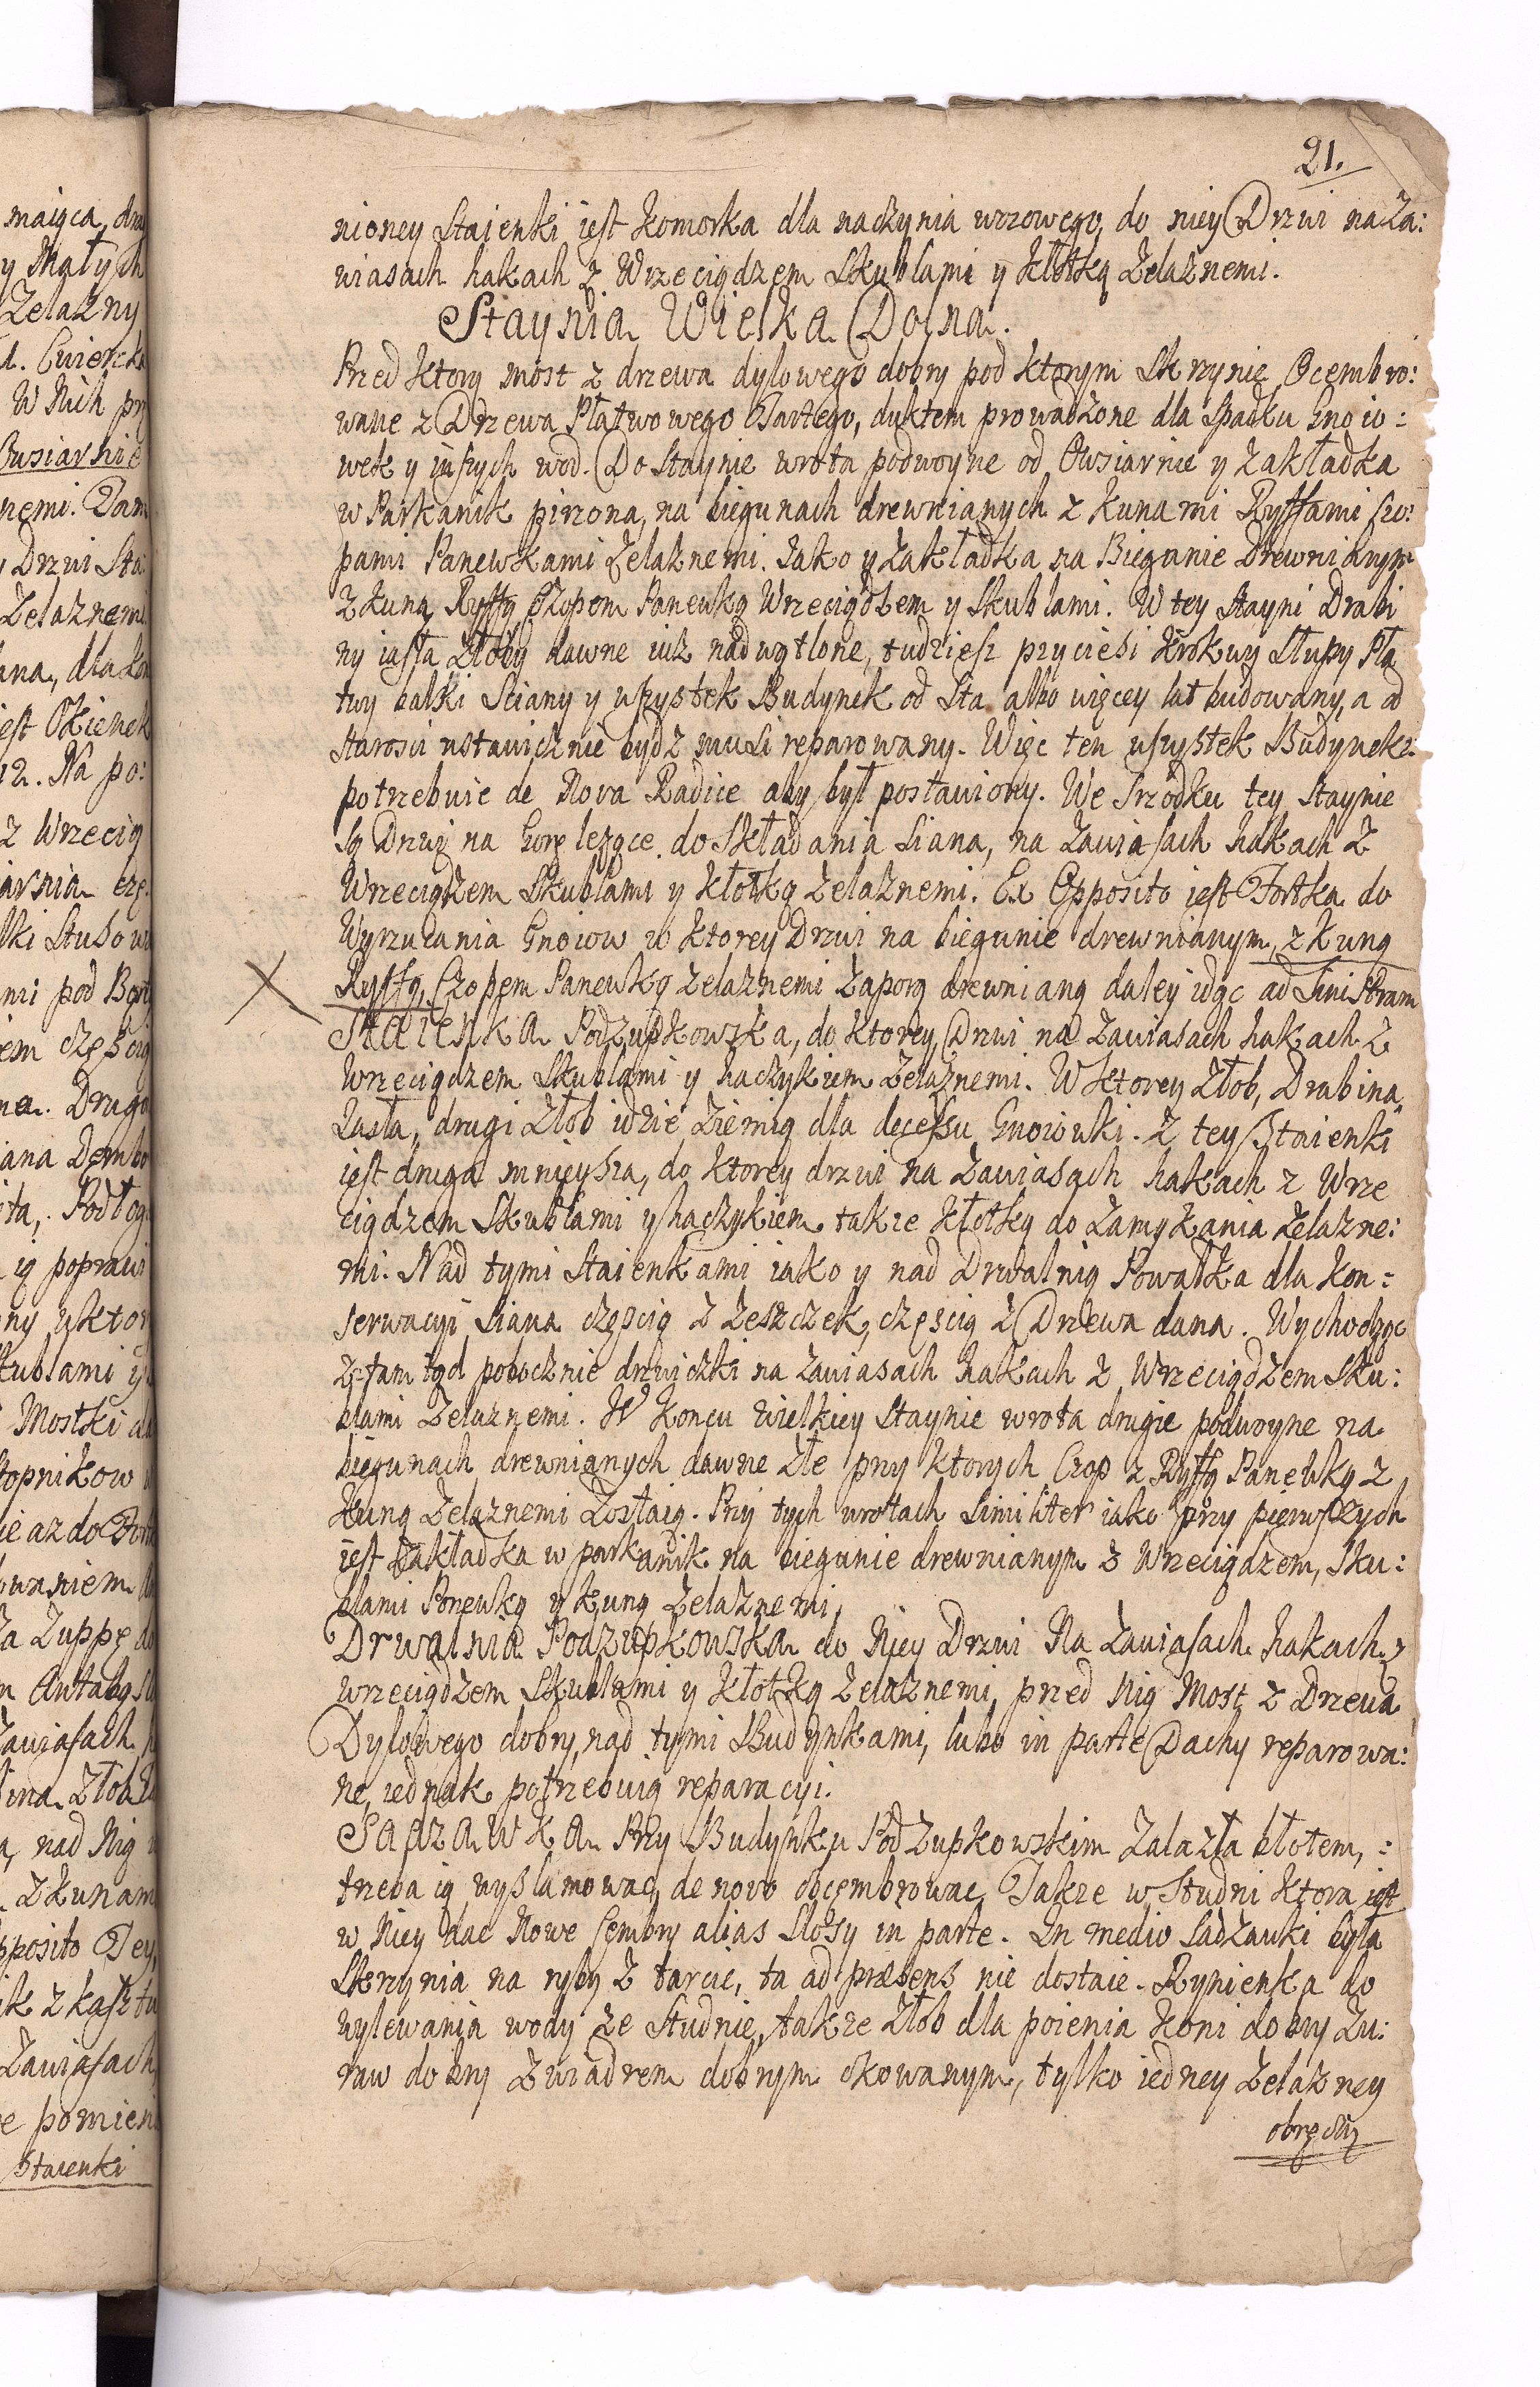 21.
nioney Staienki iest komorka dla naczynia wozowego, do niey Drzwi na Za:
wiasach hakach z Wrzeciądzem Skublami y kłotką Żelaznemi.
Staynia Wielka Dolna.
Przed ktorą most z drzewa dylowego dobry pod ktorym Skrzynie Ocembro:
wane z Drzewa Płatwowego Tartego, duktem prowadzone dla Spadku Gnoio:
wek y inszych wod. Do Staynie wrota podwoyne od Owsiarnie y zakładka
w Parkanik pirzona, na biegunach drewnianych z kunami Ryffami Czo:
pami Panewkami Żelaznemi. Iako y Zakładka na Biegunie Drewnianym
z kuną Ryffą Czopem Panewką Wrzeciądzem y Skublami. W tey Stayni Drabi
ny iasła Złoby dawne iuż nadwątlone, tudziesz przyciesi krokwy Słupy Pła
twy balki Sciany y wszystek Budynek od Sta albo więcey lat budowany, a od
starosci ustawicznie bydz musi reparowany. Więc ten wszystek Budynek
potrzebuie de Nova Radice aby był postawiony. We Srzodku tey Staynie
są Drzwi na Gorę leżące do Składania Siana, na zawiasach hakach z
Wrzeciądzem Skublami y kłotką żelaznemi. Ex Opposito iest Fortka do
Wyrzucania Gnoiow w ktorey Drzwi na biegunie drewnianym, z kuną
Ryffą, Czopem Panewką żelaznemi zaporą drewnianą daley idąc ad Sinistram
Staienka Podzupkowska, do ktorey Drzwi na zawiasach hakach z
Wrzeciądzem Skublami y haczykiem Żelaznemi. W ktorey Złob, Drabina
Iasła, drugi Złob idzie Ziemią dla decessu Gnoiowki. Z tey Staienki
iest druga mnieysza, do ktorey drzwi na zawiasach hakach z Wrze
ciądzem Skublami y haczykiem takze kłotką do zamykania żelazne:
mi. Nad tymi Staienkami iako y nad Drwalnią Powałka dla kon:
serwacyi Siana częscią z Leszczek, częscią z Drzewa dana. Wychodząc
z tamtąd pobocznie drzwiczki na zawiasach hakach z Wrzeciądzem Sku:
blami Żelaznemi. W koncu wielkiey Staynie wrota drugie podwoyne na
biegunach drewnianych dawne złe przy ktorych Czop z Ryffą Panewką z
kuną żelaznemi zostaią. Przy tych wrotach Similiter iako przy pierwszych
iest zakładka w parkanik na biegunie drewnianym z Wrzeciądzem, Sku:
blami Panewką y kuną żelaznemi,
Drwalnia Podzupkowska do Niey Drzwi Na zawiasach hakach z
wrzeciądzem Skublami y kłotką żelaznemi, przed Nią Most z Drzewa
Dylowego dobry, nad tymi Budynkami, lubo in parte Dachy reparowa:
ne, iednak potrzebuią reparacyi.
Sadzawka Przy Budynku Podzupkowskim Zalazła błotem,
trzeba ią wyszlamować, de novo ocembrowac, Takze w Studni ktora iest
w Niey dac Nowe Cembry alias Slosy in parte. In medio Sadzawki była
Skrzynia na ryby z tarcic, ta ad præsens nie dostaie. Rynienka do
wylewania wody ze Studnie, takze Złob dla poienia koni dobry Zu:
raw dobry z wiadrem dobrym okowanym, tylko iedney żelazney
obręczy
maiąca
y Małych
Żelazny
W Nich
Owsiarnie
nemi. Tam
Drzwi Sta:
Żelaznemi
iest Okienek
12. Na po:
z Wrzecią
mi pod
częscią
Druga
iana Dembo
ią poprawi
kublami y
Mostki
Stopnikow
Zuppę
Antabą
Zawiasach
Złob
nad Nią
z kunam
pposito Tey
Zawiasach
pomieni
Staienki